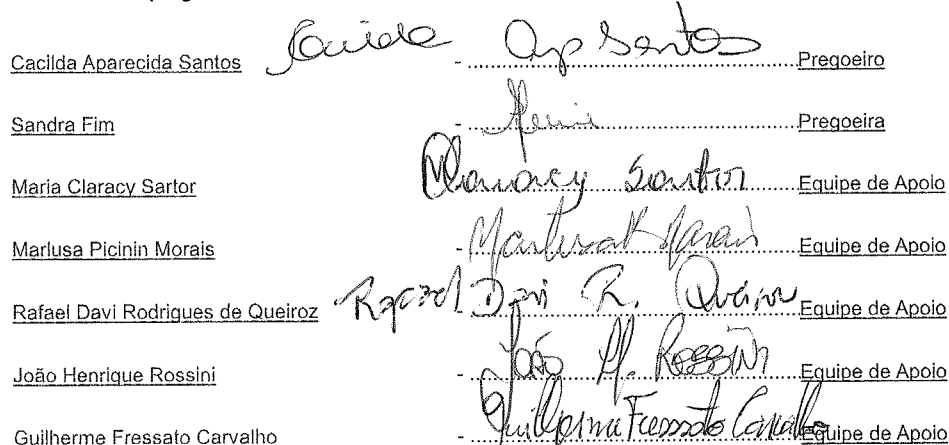 Cacilda Aparecida Santos Cacilda Ap Santos Pregoeiro
Sandra Fim - Pregoeira
Maria Claracy Sartor MClaracy Sartor Equipe de Apoio
Marlusa Picinin Morais - Marlusa P Morais Equipe de Apoio
Rafael Davi Rodrigues de Queiroz Rafael Davi R. Queiroz Equipe de Apoio
João Henrique Rossini - João H. Rossini Equipe de Apoio
Guilherme Fressato Carvalho - Guilherme Fressato Carvalho Equipe de Apoio